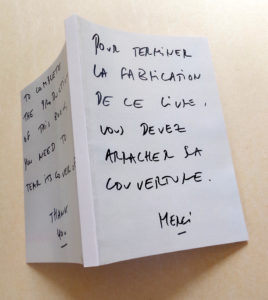 TO COMPLETE
THE PRODUCTION
OF THIS BOOK,
YOU NEED TO
TEAR ITS COVER OFF
THANK
YOU.
POUR TERMINER
LA FABRICATION
DE CE LIVRE,
VOUS DEVEZ
ARRACHER SA
COUVERTURE.
MERCI